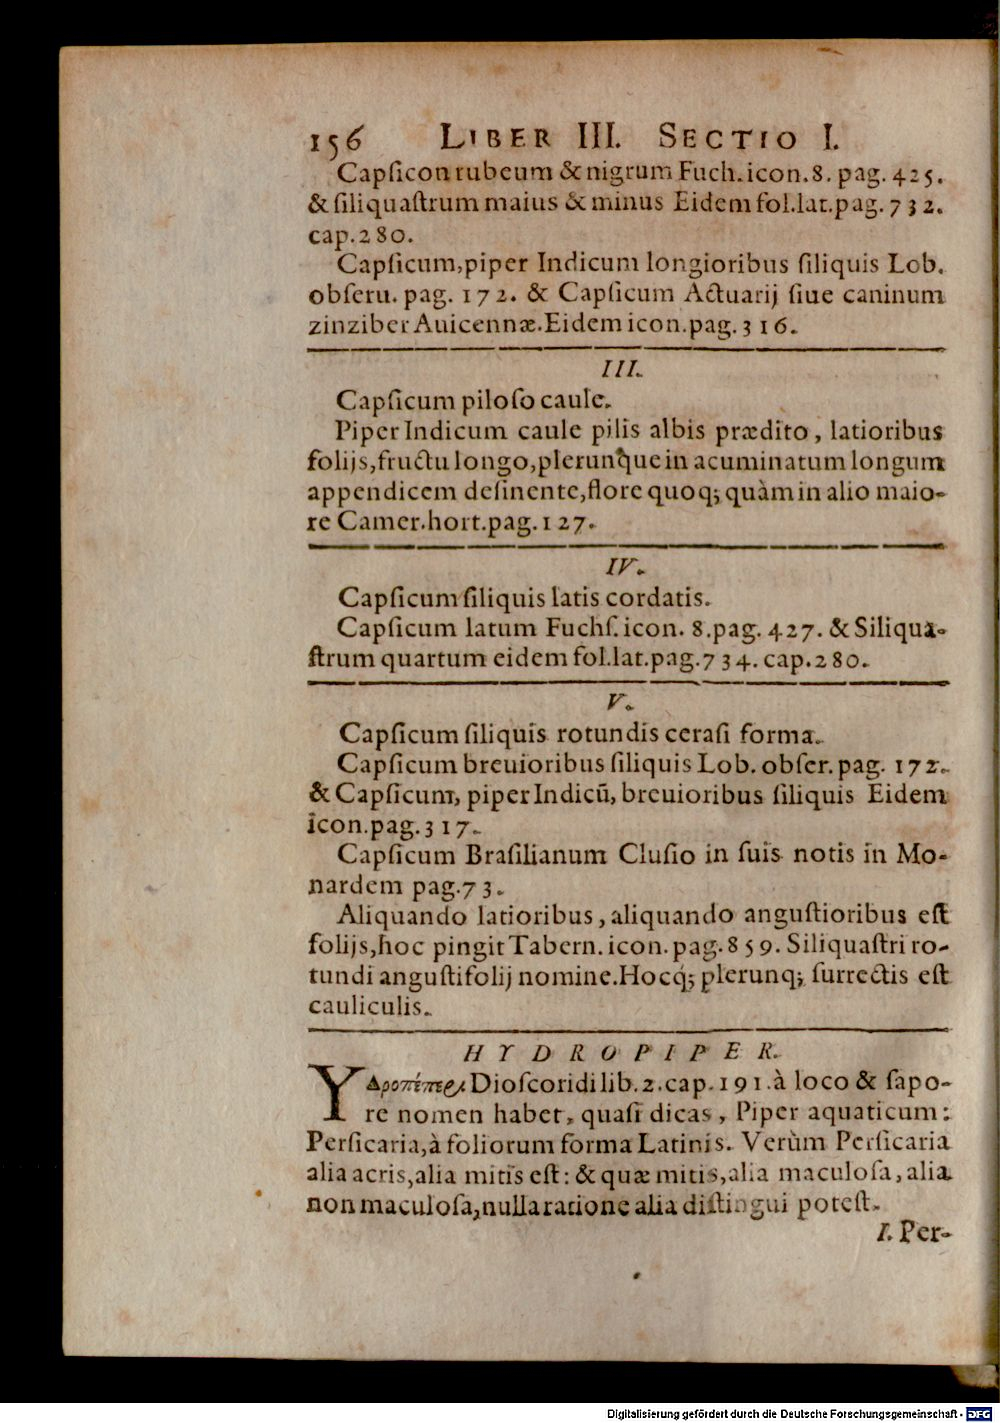 156 LIBER III. SECTIO I.
Capſicon rubeum & nigrum Fuch. icon. 8. pag. 425.
& ſiliquaſtrum maius & minus Eidem fol. lat. pag. 732.
cap. 280.
Capſicum, piper Indicum longioribus ſiliquis Lob.
obſeru. pag. 172. & Capſicum Actuarij ſiue caninum
zinziber Auicennæ. Eidem icon. pag. 316.
III.
Capſicum piloſo caule.
Piper Indicum caule pilis albis prædito, latioribus
folijs, fructu longo, plerunque in acuminatum longum
appendicem deſinente, flore quoq; quàm in alio maio-
re Camer. hort. pag. 127.
IV.
Capſicum ſiliquis latis cordatis.
Capſicum latum Fuchſ. icon. 8. pag. 427. & Siliqua-
ſtrum quartum eidem fol. lat. pag. 734. cap. 280.
V.
Capſicum ſiliquis rotundis ceraſi forma.
Capſicum breuioribus ſiliquis Lob. obſer. pag. 172.
& Capſicum, piper Indicū, breuioribus ſiliquis Eidem
icon. pag. 317.
Capſicum Braſilianum Cluſio in ſuis notis in Mo-
nardem pag. 73.
Aliquando latioribus, aliquando anguſtioribus eſt
folijs, hoc pingit Tabern. icon. pag. 859. Siliquaſtri ro-
tundi anguſtifolij nomine. Hocq́; plerunq; ſurrectis eſt
cauliculis.
HYDROPIPER.
ΥΔροπέπερι Dioſcoridi lib. 2. cap. 191. à loco & ſapo-
re nomen habet, quaſi dicas, Piper aquaticum:
Perſicaria, à foliorum forma Latinis. Verùm Perſicaria
alia acris, alia mitis eſt: & quæ mitis, alia maculoſa, alia
non maculoſa, nulla ratione alia diſtingui poteſt.
I. Per-
Digitalisierung gefördert durch die Deutsche Forschungsgemeinschaft - DFG